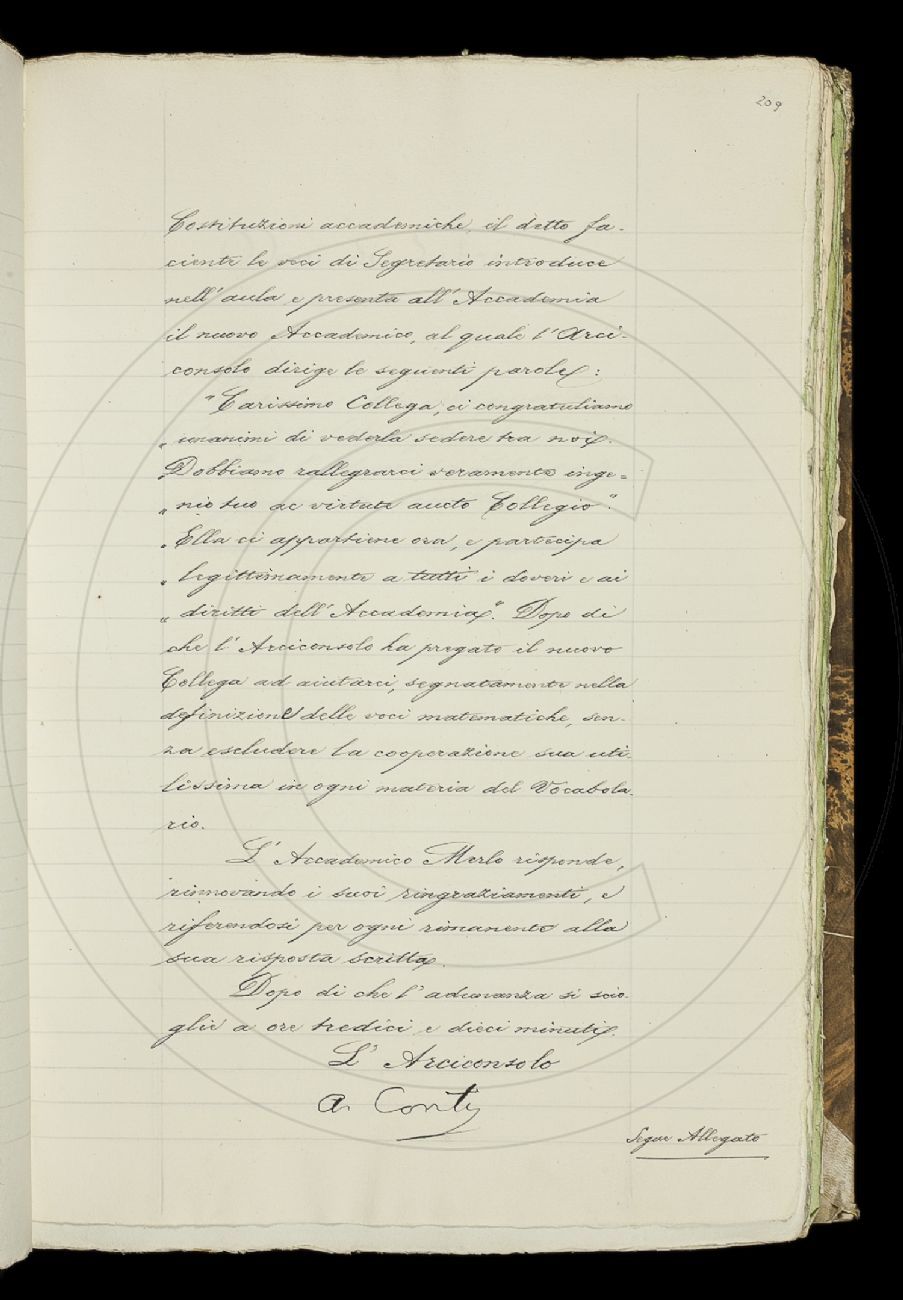 209
Costituzioni accademiche, il detto fa-
ciente le veci di Segretario introduce
nell'aula e presenta all'Accademia
il nuovo Accademico, al quale l'Arci-
consolo dirige le seguenti parole:
"Carissimo Collega, ci congratuliamo
„ unanimi di vederla sedere tra noi.
Dobbiamo rallegrarci veramente inge=
„ nio tuo ac virtute aucto Collegio".
„ Ella ci appartiene ora, e partecipa
„ legittimamente a tutti i doveri e ai
„ diritti dell'Accademia". Dopo di
che l'Arciconsolo ha pregato il nuovo
Collega ad aiutarci, segnatamente nella
definizione delle voci matematiche, sen-
za escludere la cooperazione sua uti-
lissima in ogni materia del Vocabola-
rio.
L'Accademico Merlo risponde,
rinnovando i suoi ringraziamenti, e
riferendosi per ogni rimanente alla
sua risposta scritta.
Dopo di che l'adunanza si scio-
glie a ore tredici e dieci minuti.
L'Arciconsolo
A. Conti
Segue Allegato